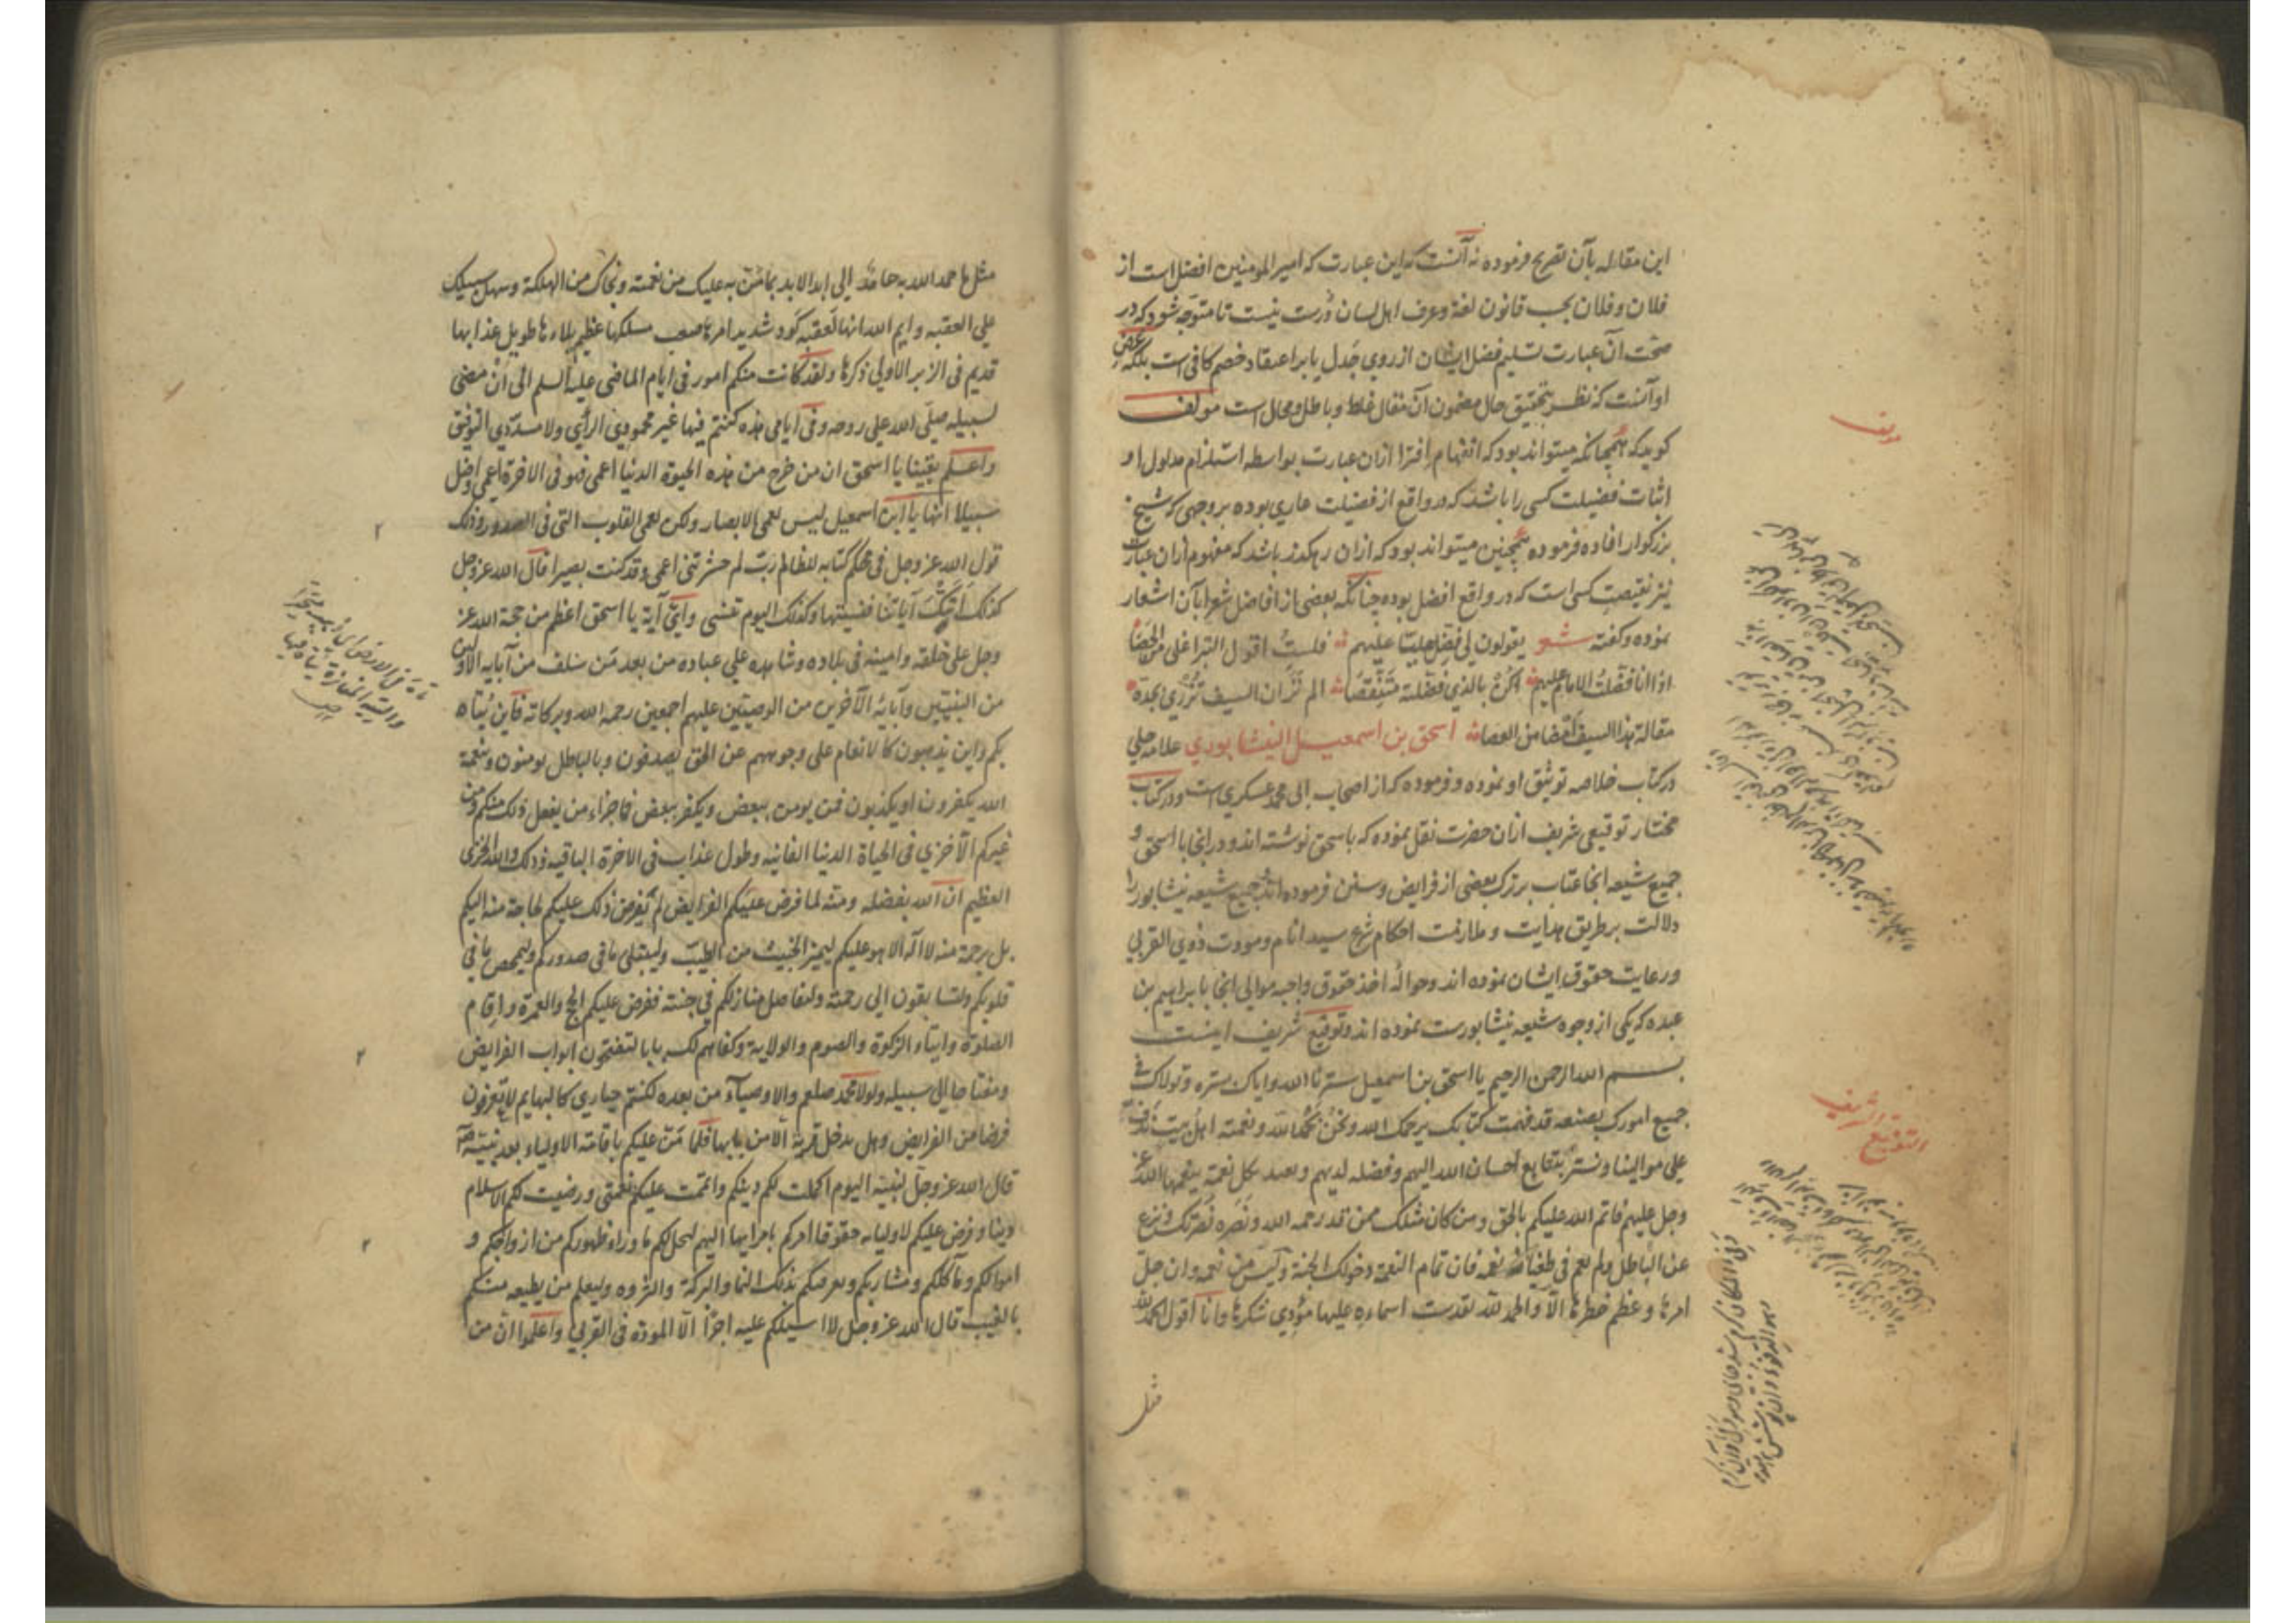 این مقاله بآن تصریح فرموده نه آنست که این عبارت که امیرالمومنین افضل است از
فلان و فلان بحسب قانون لغة و عرف اهل لسان درست نیست تا متوجه شود که در
صحت آن عبارت تسلیم فضل ایشان از روی جدل یا بر اعتقاد خصم کافی است بلکه غرض
او آنست که نظر بتحقیق حال مضمون آن مقال غلط و باطل و محال است مولف
کوید که همچنانکه میتواند بود که انفهام افترا ازان عبارت بواسطه استلزام مدلول او
اثبات فضیلت کسی را باشد که در واقع از فضیلت عاری بوده بر وجهی که شیخ
بزرکوار افاده فرموده همچنین میتواند بود که ازان رهکذر باشد که مفهوم ازان عبارت
نیز نقیصت کسی است که در واقع افضل بوده چنانکه بعضی از افاضل شعرا بآن اشعار
نموده و کفته شعر یقولون لی فضل علیا علیهم فلست اقول التبر اعلی من الحصا
اذا انا فضلت الامام علیهم اکن بالذی فضلته متنقصا الم تر ان السیف تزری بحده
مقالة هذا السیف امضا من العصا اسحق بن اسمعیل النیشابوری علامه حلی
در کتاب خلاصه توثیق او نموده و فرموده که از اصحاب ابی محمد عسکری است و در کتاب
مختار توقیعی شریف ازان حضرت نقل نموده که باسحق نوشته اند و در انجا با اسحق و
جمیع شیعه انجا عتاب بر ترک بعضی از فرایض و سنن فرموده اند جمیع شیعه نیشابور را
دلالت بر طریق هدایت و ملازمت احکام شرع سید انام و مودت ذوی القربی
و رعایت حقوق ایشان نموده اند و حواله اخذ حقوق واجبه موالی انجا بابراهیم بن
عبده که یکی از وجوه شیعه نیشابورست نموده اند و توقیع شریف اینست
بسم الله الرحمن الرحیم یا اسحق بن اسمعیل سترنا الله و ایاک بستره و تولاک فی
جمیع امورک بصنعه قد فهمت کتابک یرحمک الله و نحن بحمد الله و نعمته اهل بیت نرق
علی موالینا و نسر بتتابع احسان الله الیهم و فضله لدیهم و نعتد بکل نعمة ینعمها الله عز
وجل علیهم فاتم الله علیکم بالحق و من کان مثلک ممن قد رحمه الله و نصره نصرک و نزع
عن الباطل و لم یعم فی طغیانه نعمه فان تمام النعمة دخولک الجنة و لیس من نعمه و ان جل
امرها و عظم خطرها الا و الحمد لله تقدست اسماءه علیها مؤدی شکرها و انا اقول الحمد لله
مثل
مولف
التوقیع الشریف
مثل ما حمد الله به حامد الی ابد الابد بما من به علیک من نعمته و نجاک من الهلکة و سهل سبیلک
علی العقبه و ایم الله انها لعقبه کؤد شدید امرها صعب مسلکها عظیم بلاءها طویل عذابها
قدیم فی الزبر الاولی ذکرها و لقد کانت منکم امور فی ایام الماضی علیه السلم الی ان مضی
لسبیله صلی الله علی روحه و فی ایامی هذه کنتم فیها غیر محمودی الرأی و لا مسددی التوفیق
و اعلم یقینا یا اسحق ان من خرج من هذه الحیوة الدنیا اعمی فهو فی الاخرة اعمی و اضل
سبیلا انها یا ابن اسمعیل لیس تعمی الابصار و لکن تعمی القلوب التی فی الصدور و ذلک
قول الله عز وجل فی محکم کتابه للظالم رب لم حشرتنی اعمی و قد کنت بصیرا قال الله عز وجل
کذلک اتتک آیاتنا فنسیتها و کذلک الیوم تنسی و ای آیة یا اسحق اعظم من حجة الله عز
وجل علی خلقه و امینه فی بلاده و شاهده علی عباده من بعد من سلف من آبایه الاولین
من النبیین و آبائه الآخرین من الوصیین علیهم اجمعین رحمه الله و برکاته فاین یتاه
بکم و این تذهبون کالانعام علی وجوههم عن الحق تصدفون و بالباطل یومنون و بنعمة
الله یکفرون او یکذبون فمن یومن ببعض و یکفر ببعض فما جزاء من یفعل ذلک منکم و من
غیرکم الا خزی فی الحیاة الدنیا الفانیه و طول عذاب فی الاخرة الباقیه و ذلک والله الخزی
العظیم ان الله بفضله و منه لما فرض علیکم الفرایض لم یفرض ذلک علیکم لحاجة منه الیکم
بل برحمة منه لا اله الا هو علیکم لیمیز الخبیث من الطیب و لیبتلی ما فی صدورکم و لیمحص ما فی
قلوبکم و لتسابقون الی رحمته و لتفاضل منازلکم فی جنته ففرض علیکم الحج و العمرة و اقام
الصلوة و ایتاء الزکوة و الصوم و الولایة و کفاهم لک بابا لتفتحون ابواب الفرایض
و مفتاحا الی سبیله و لولا محمد صلعم و الاوصیآء من بعده لکنتم حیاری کالبهایم لا تعرفون
فرضا من الفرایض و هل یدخل قریة الا من بابها فلما من علیکم باقامة الاولیاء بعد نبیه
قال الله عز وجل لنبیه الیوم اکملت لکم دینکم و اتممت علیکم نعمتی و رضیت لکم الاسلام
دینا و فرض علیکم لاولیائه حقوقا امرکم باداءها الیهم لیحل لکم ما وراء ظهورکم من ازواجکم و
اموالکم و مآکلکم و مشاربکم و یعرفکم بذلک النما و البرکة و الثروه و لیعلم من یطیعه منکم
بالغیب قال الله عز وجل لا اسئلکم علیه اجرا الا المودة فی القربی و اعلموا ان من